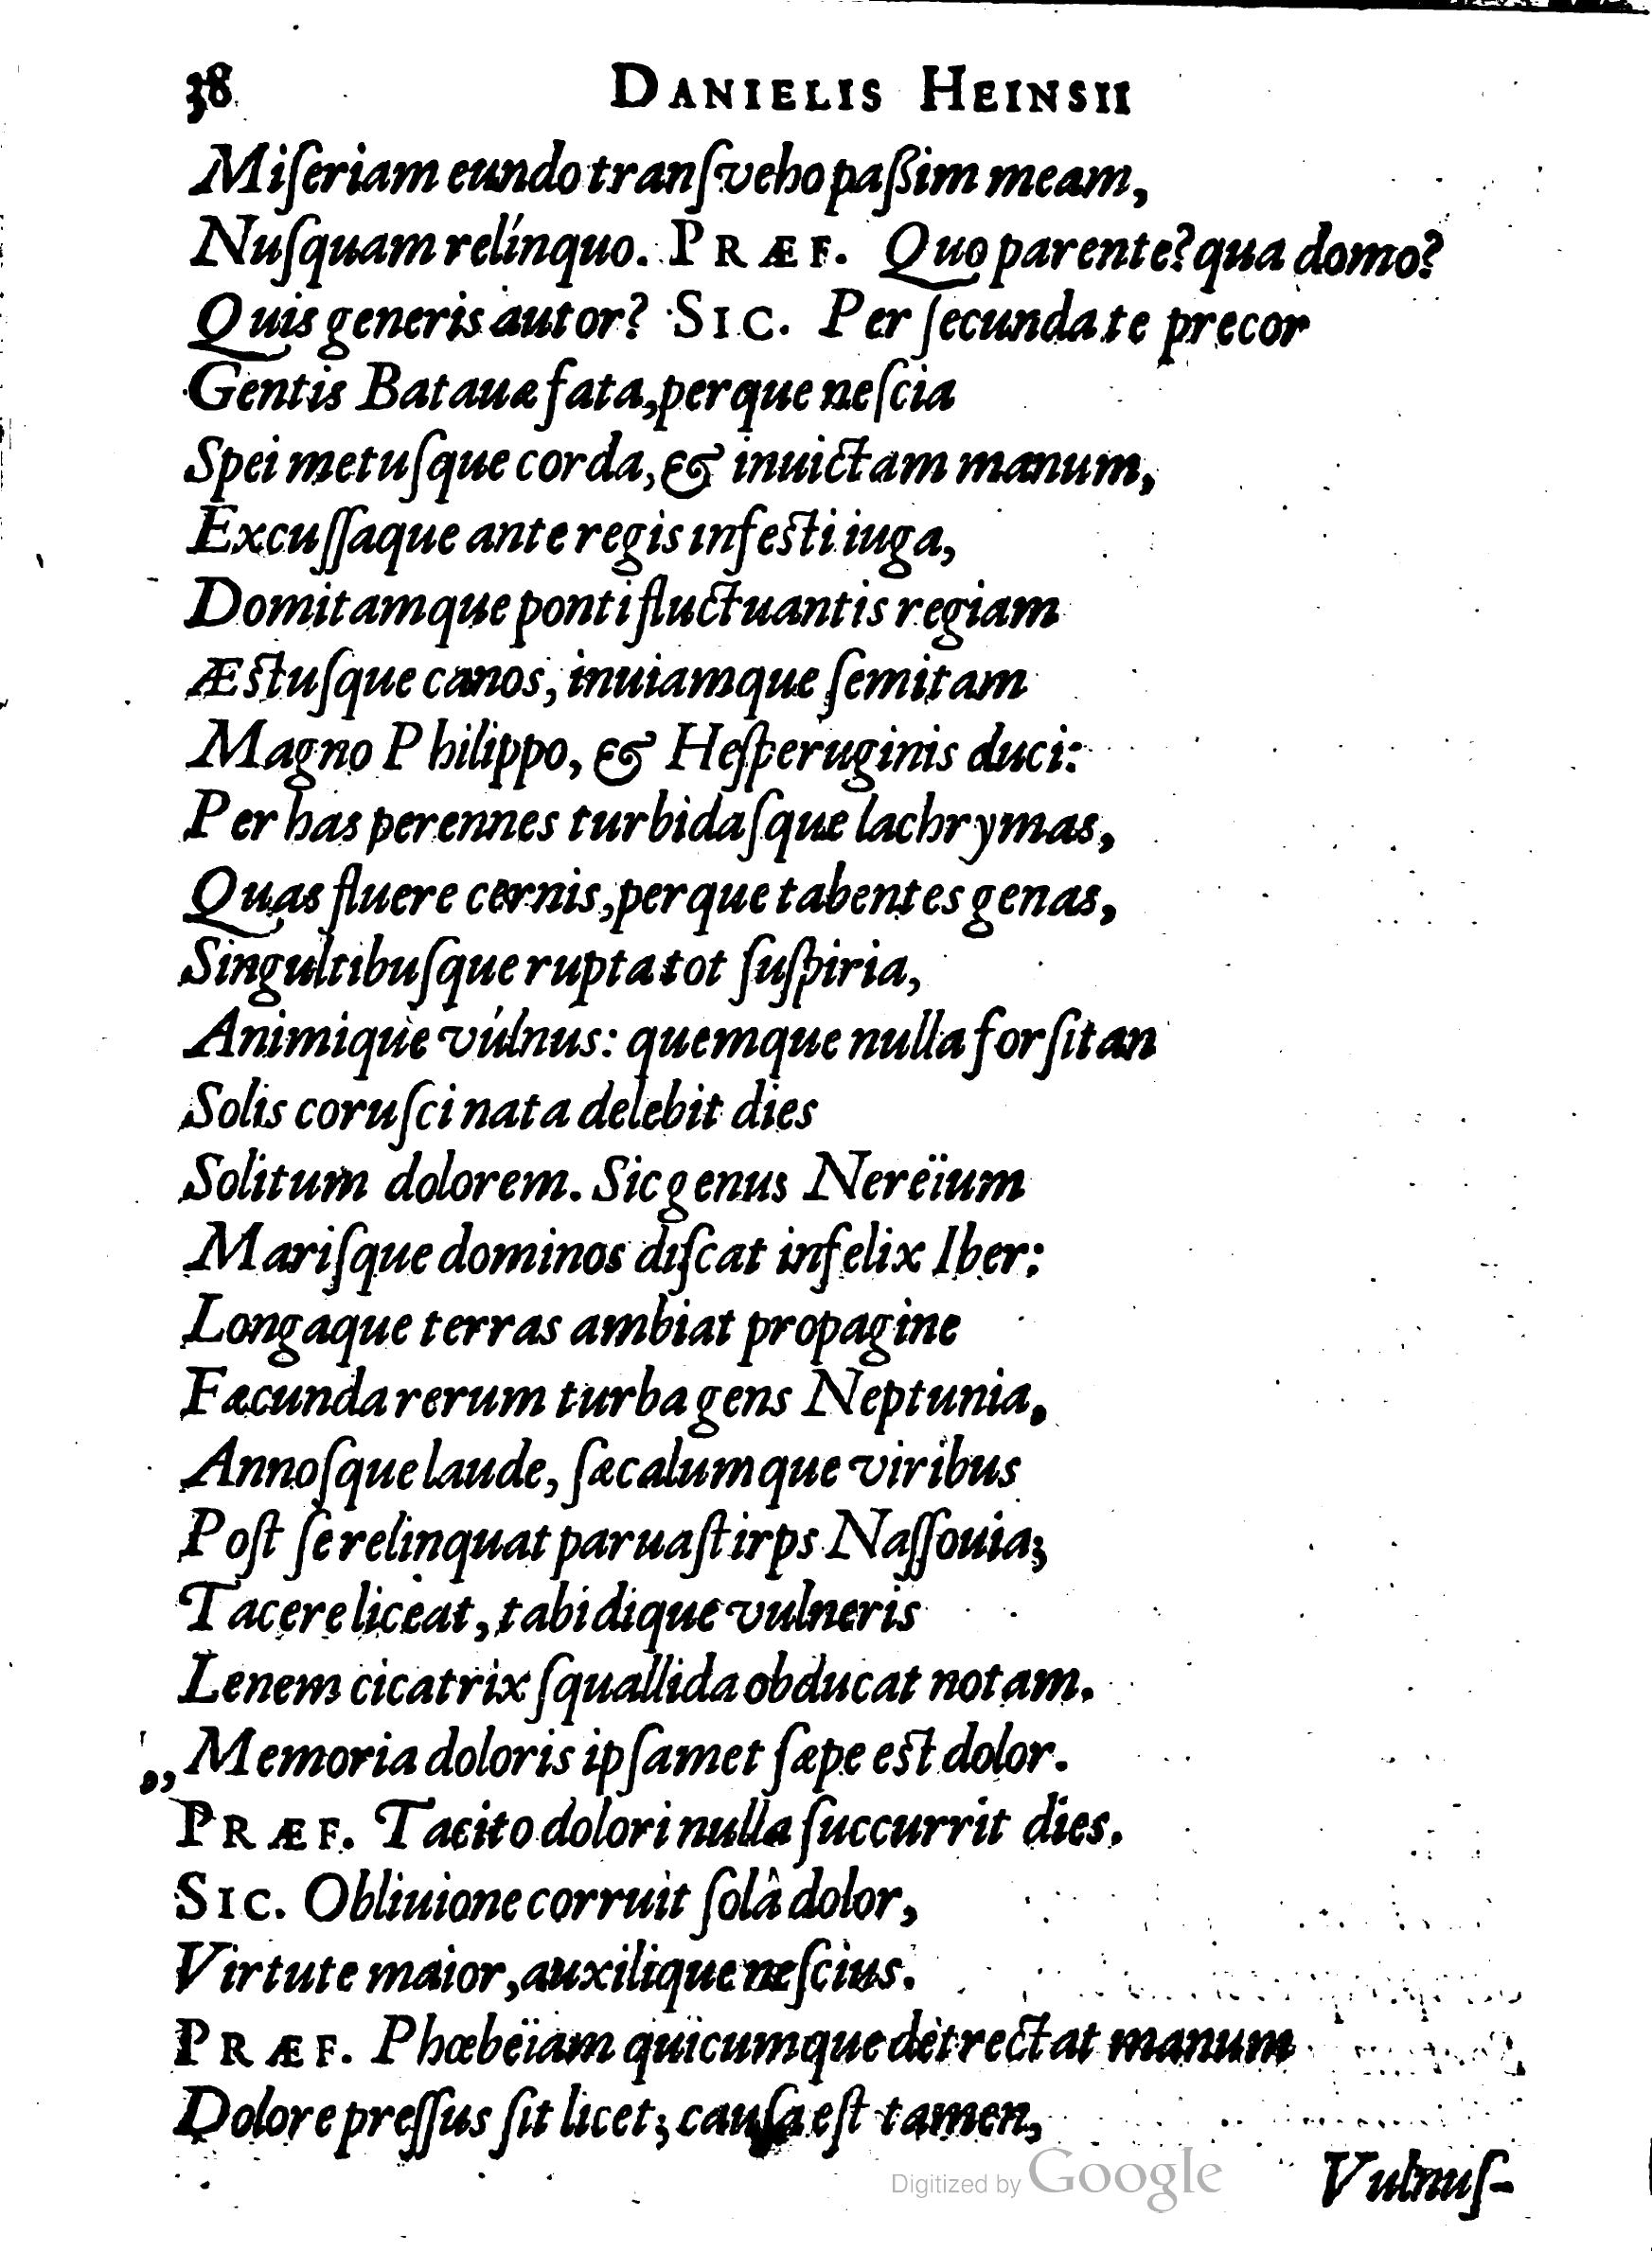 38 DANIELIS HEINSII
Miſeriam eundo tranſveho paßim meam,
Nuſquam relínquo. PRÆF. Quo parente? qua domo?
Quis generis autor? SIC. Per ſecunda te precor
Gentis Batauæ fata, perque neſcia
Spei metuſque corda, & inuictam manum,
Excuſſaque ante regis infesti iuga,
Domitamque ponti fluctuantis regiam
Æstuſque canos, inuiamque ſemitam
Magno Philippo, & Heſperuginis duci:
Per has perennes turbidaſque lachrymas,
Quas fluere cernis, perque tabentes genas,
Singultibuſque rupta tot ſuſpiria,
Animique vúlnus: quemque nulla forſitan
Solis coruſci nata delebit dies
Solitum dolorem. Sic genus Nereïum
Mariſque dominos diſcat infelix Iber:
Longaque terras ambiat propagine
Fæcunda rerum turba gens Neptunia,
Annoſque laude, ſæcalumque viribus
Poſt ſe relinquat parua ſtirps Naſſouia;
Tacere liceat, tabidique vulneris
Lenem cicatrix ſquallida obducat notam.
„Memoria doloris ipſamet ſæpe est dolor.
PRÆF. Tacito dolori nulla ſuccurrit dies.
SIC. Obliuione corruit ſolâ dolor,
Virtute maior, auxilique neſcius.
PRÆF. Phœbëiam quicumque detrectat manum
Dolore preſſus ſit licet; cauſa eſt tamen,
Vulnuſ-
Digitized by Google